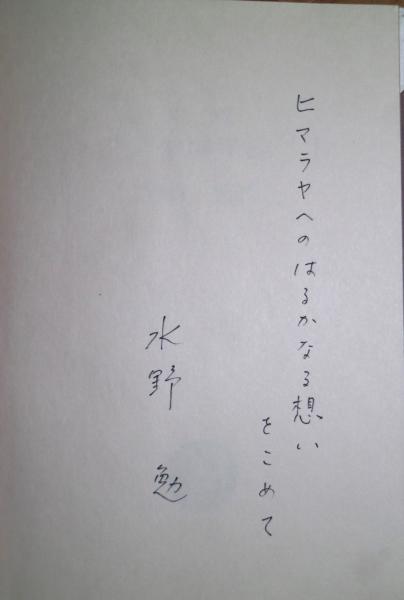 ヒマラヤへのはるかなる想い
をこめて
水野 勉